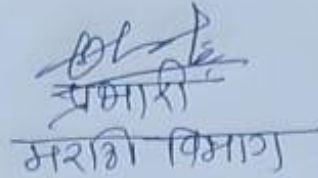 प्रभारी
मराठी विभाग